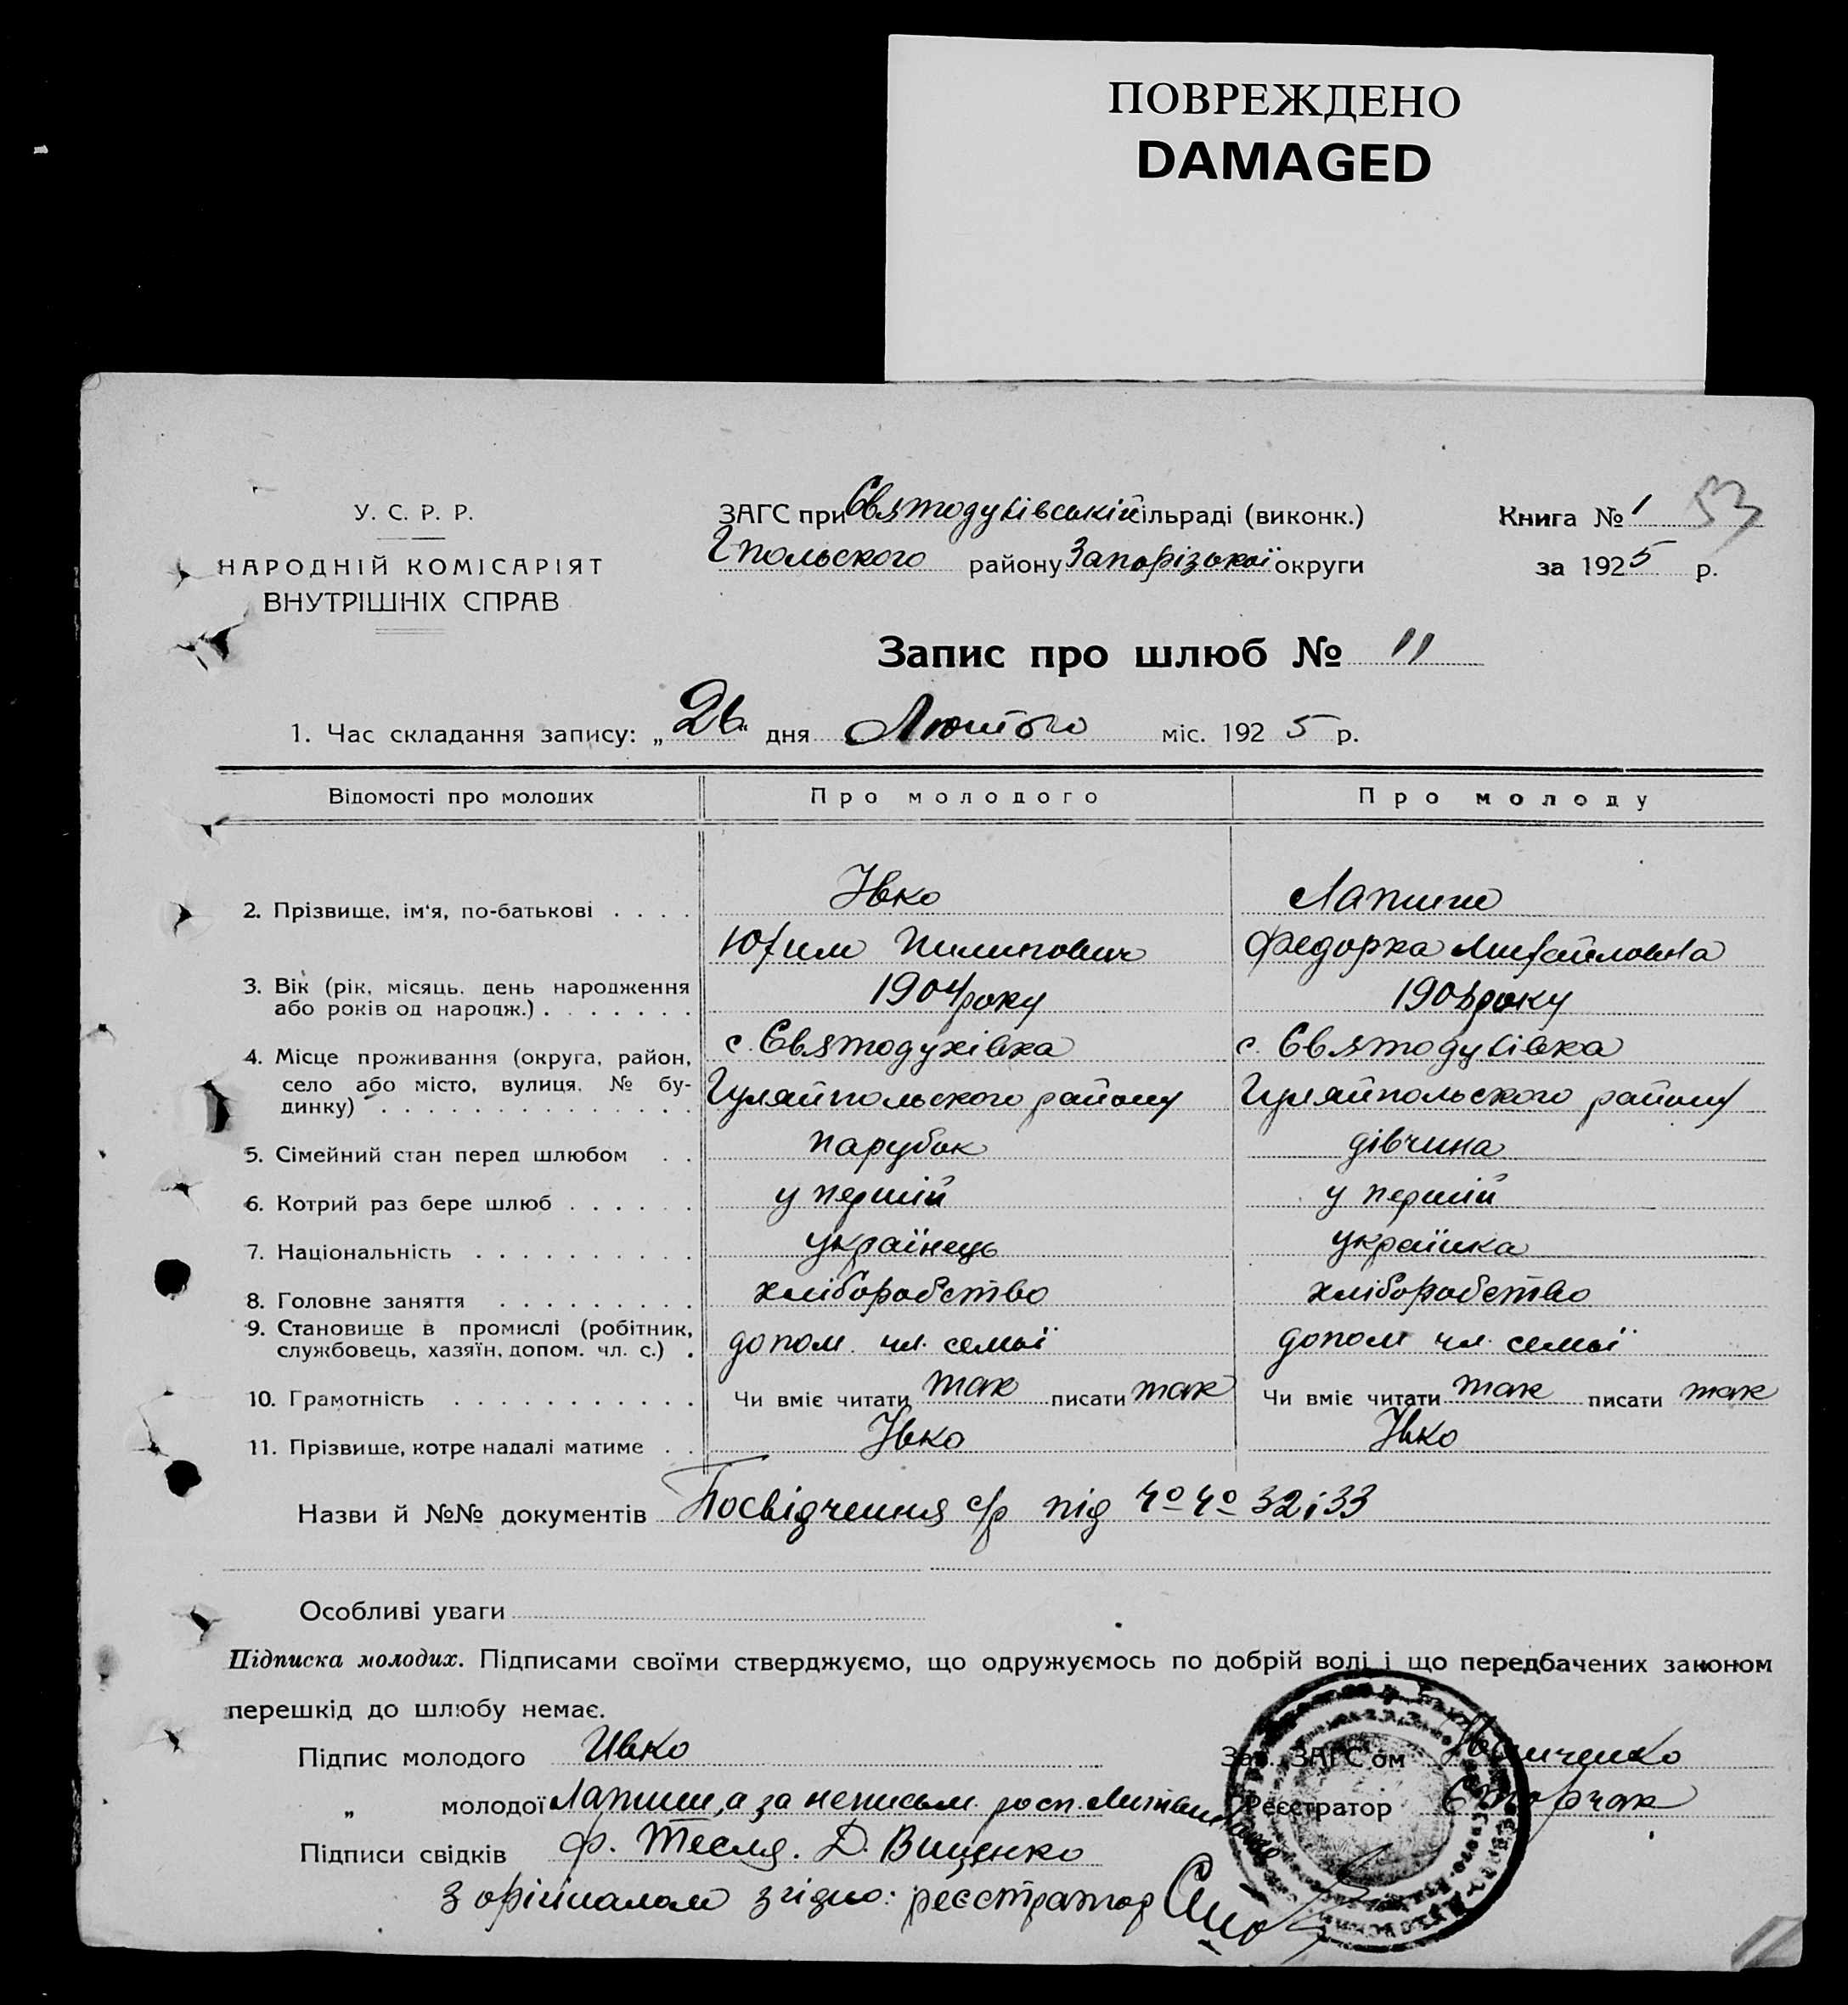 ПОВРЕЖДЕНО
DAMAGED
У. С. Р. Р.
НАРОДНІЙ КОМІСАРІЯТ
ВНУТРІШНІХ СПРАВ
ЗАГС при Святодухівській сільраді (виконк.)
Гпольского району Запорізької округи
Книга № 1 53
за 1925 р.
Запис про шлюб № 11
1. Час складання запису: „26“ дня Лютого міс. 1925 р.
Відомості про молодих Про молодого Про молоду
Івко Лапшин
2. Прізвище, ім'я, по-батькові . . . .
Юхим Пилипович Федорка Михайловна
3. Вік (рік, місяць, день народження
або років од народж.) . . . . . . . 1904 року 190 року
4. Місце проживання (округа, район, с. Святодухівка с. Святодухівка
село або місто, вулиця, № бу-
динку) . . . . . . . . . . . . . . Гуляйпольского району Гуляйпольского району
5. Сімейний стан перед шлюбом . . парубок дівчина
6. Котрий раз бере шлюб . . . . . . у перший у перший
7. Національність . . . . . . . . . . українець українка
8. Головне заняття . . . . . . . . . хліборобство хліборобство
9. Становище в промислі (робітник,
службовець, хазяїн, допом. чл. с.) . допом. чл. семьї допом чл. семьї
10. Грамотність . . . . . . . . . . . Чи вміє читати так писати так Чи вміє читати так писати так
11. Прізвище, котре надалі матиме . . Івко Івко
Назви й №№ документів Посвідчення с/р під №№ 32 і 33
Особливі уваги
Підписка молодих. Підписами своїми стверджуємо, що одружуємось по добрій волі і що передбачених законом
перешкід до шлюбу немає.
Підпис молодого Ивко Зав. ЗАГС'ом
„ молодої Лапшин, а за неписьм. росп. Реєстратор
Підписи свідків Ф. Тесля. Д. Вищенко
З оріґіналом згідно: реєстратор